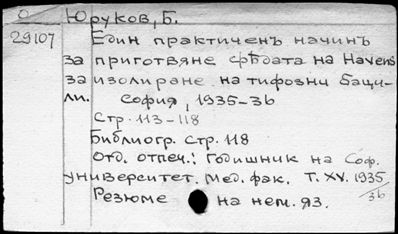 О Юруков, Б.
29107 Един практиченъ начинъ
за приготвяне срѣдата на Havens
за изолиране на тифозни баци-
ли. София, 1935-36
Стр. 113-118
Библиогр. стр. 118
Отд. отпеч.: Годишник на Соф.
университет. Мед. фак. Т. XV. 1935/36
Резюме на нем. яз.